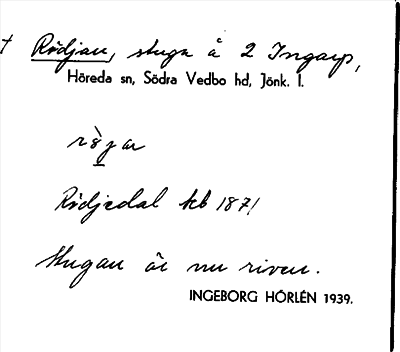 † Rödjan, stuga å 2 Ingarp,
Höreda sn, Södra Vedbo hd, Jönk. l.
Rödjedal kb 1871
Stugan är nu riven.
INGEBORG HÖRLÉN 1939.